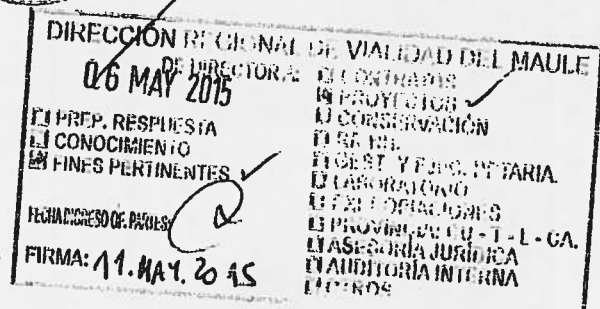 DIRECCIÓN REGIONAL DE VIALIDAD DEL MAULE
06 MAY 2015
DE DIRECTORA:
PREP. RESPUESTA
CONOCIMIENTO
FINES PERTINENTES
FECHA INGRESO OF. PARTES:
FIRMA: 11. MAY. 2015
CONTRATOS
PROYECTOS
CONSERVACIÓN
RR.HH.
GEST. Y EJEC. PPTARIA.
LABORATORIO
EXPROPIACIONES
PROVINC. DE CU - T - L - CA.
ASESORÍA JURÍDICA
AUDITORÍA INTERNA
OTROS